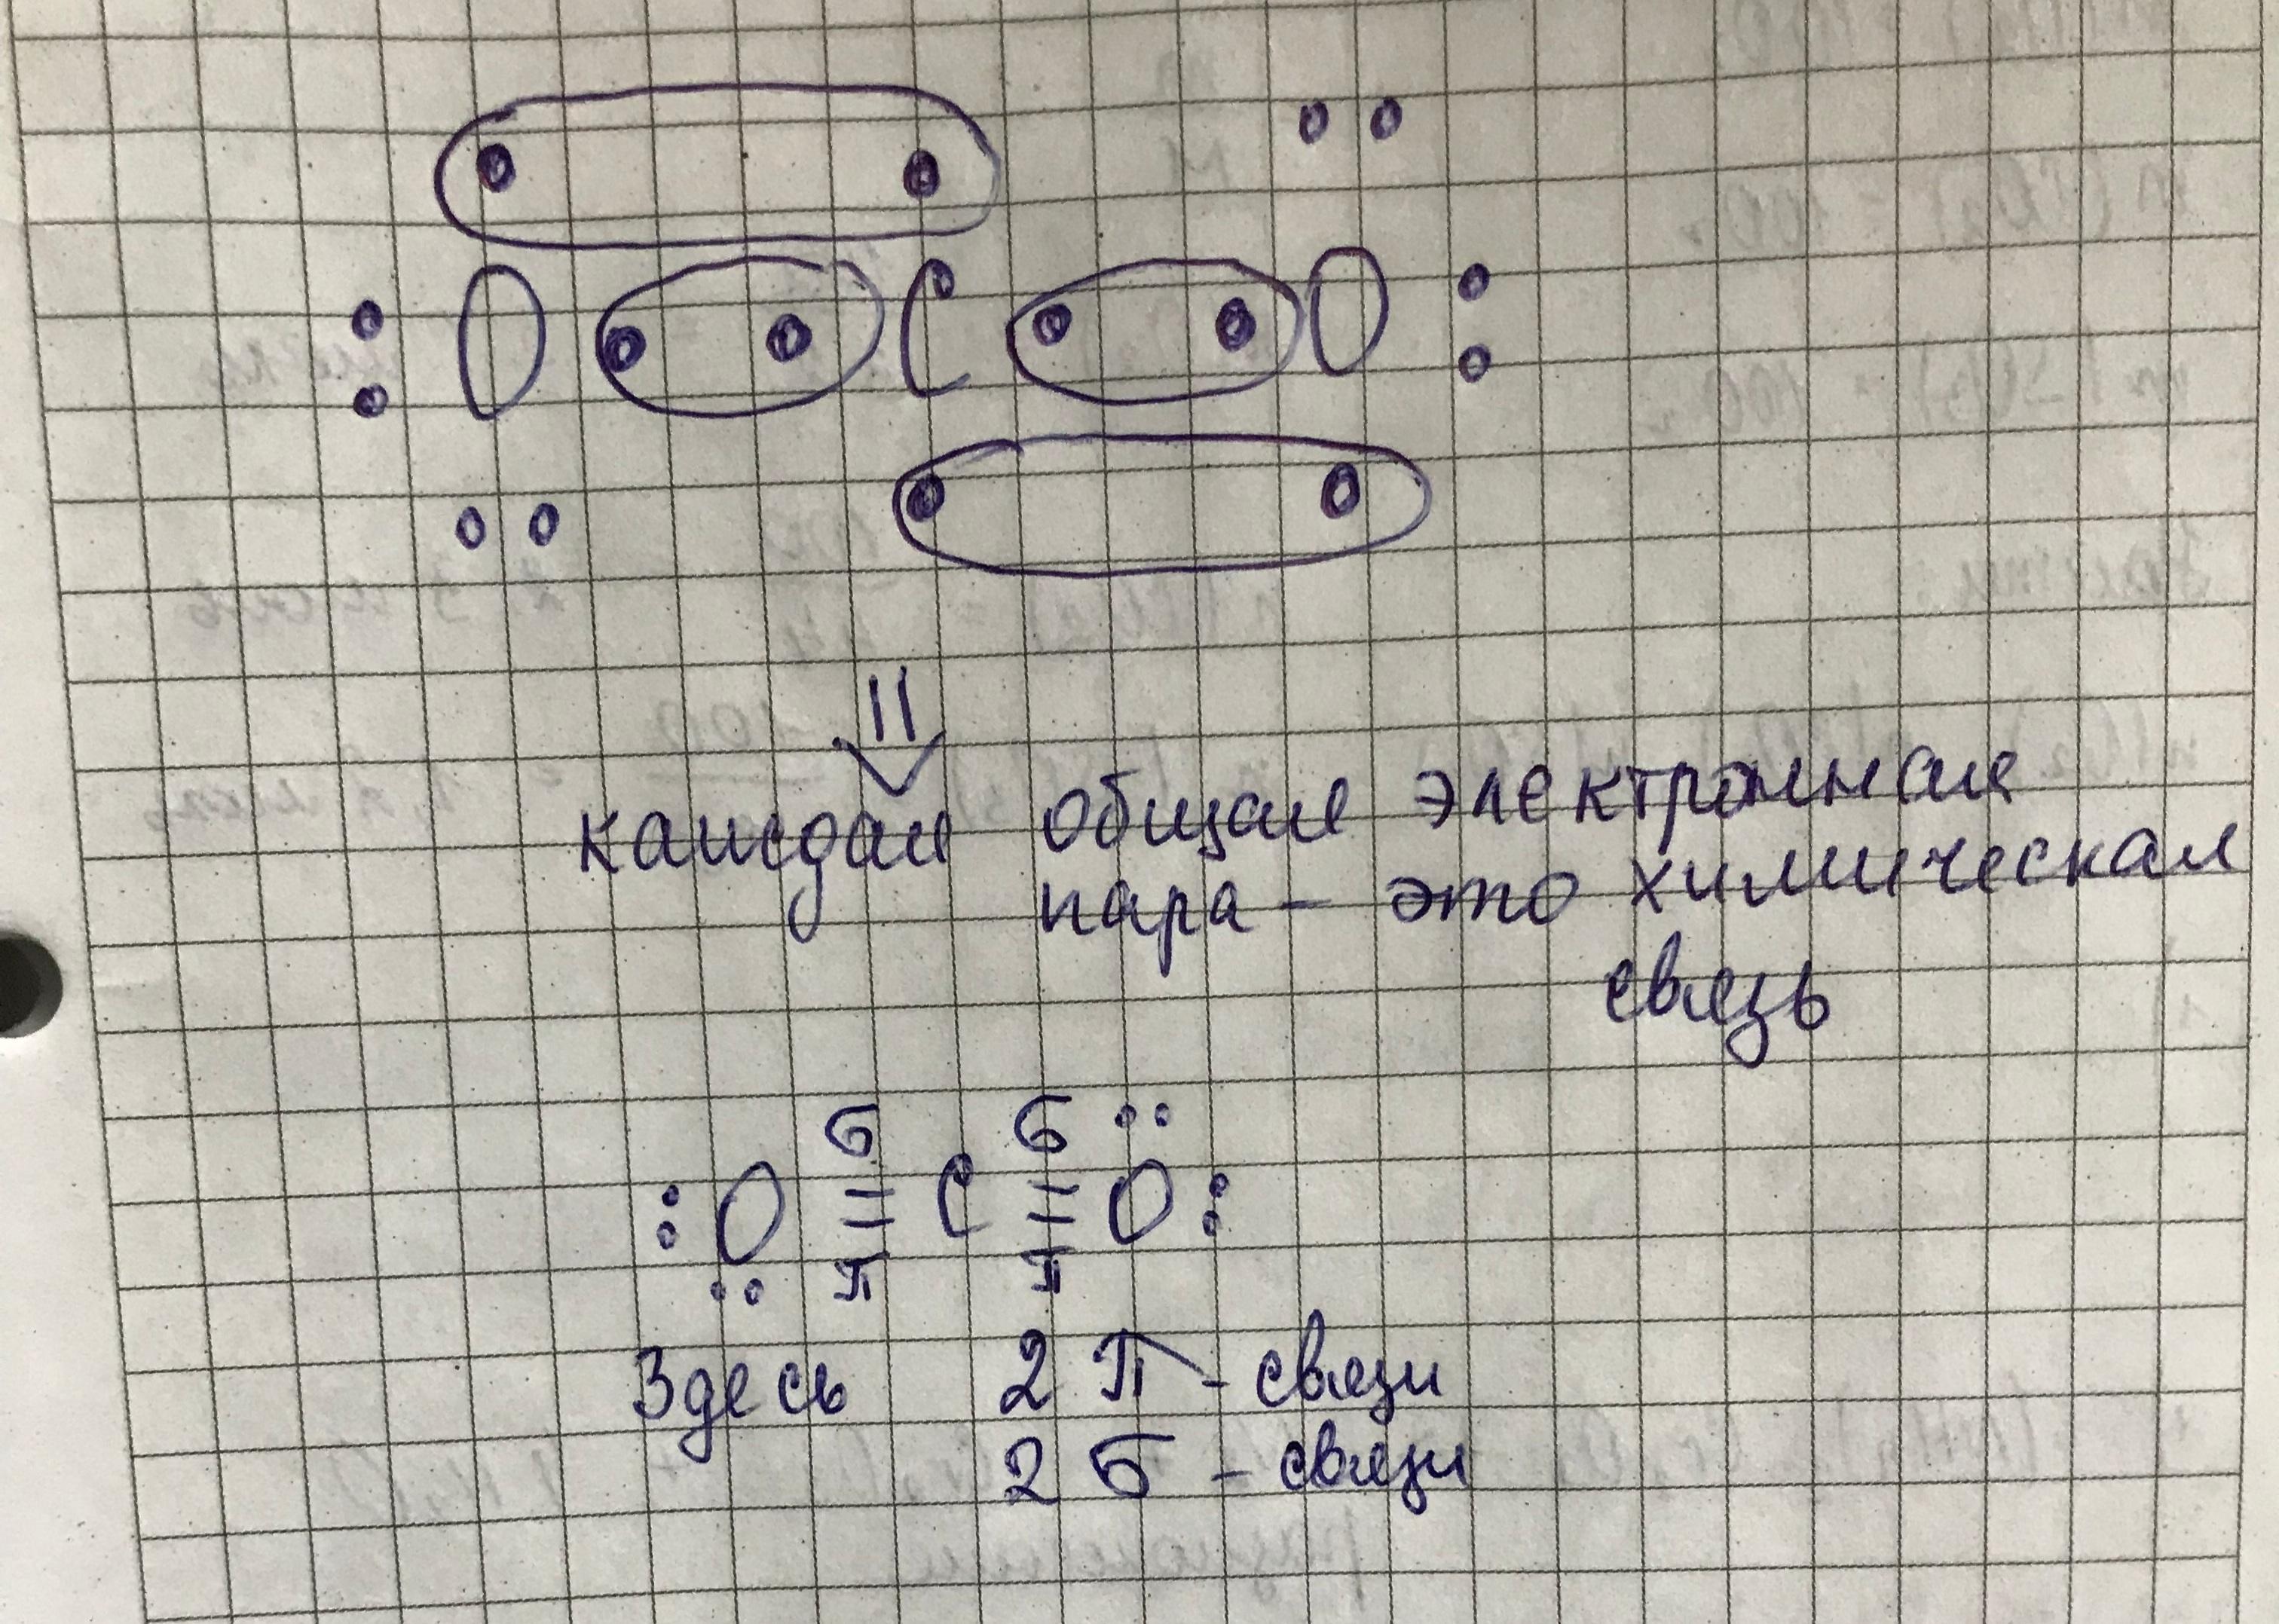 O C O
каждая общая электронная
пара - это химическая
связь
б б
:O = C = O:
π π
Здесь 2 π - связи
2 б - связи